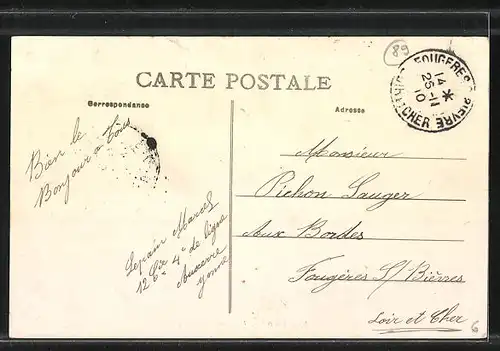 89
CARTE POSTALE
Correspondance
Adresse
FOUGÈRES S. BIEVRE
14
25-11
10
LOIR-ET-CHER
Bien le
Bonjour a Tous
Lepain Marcel
12 Cie 4e de ligne
Auxerre
Yonne
Monsieur
Pichon Sauger
Aux Bordes
Fougères S/ Bièvres
Loir et Cher
6